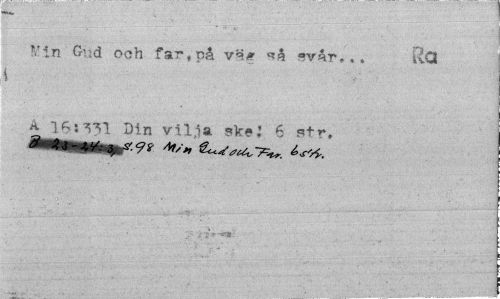 Min Gud och far, på väg så svår... Ra
A 16:331 Din vilja ske! 6 str.
B 23-24:3, s.98 Min Gud och Far. 6 str.